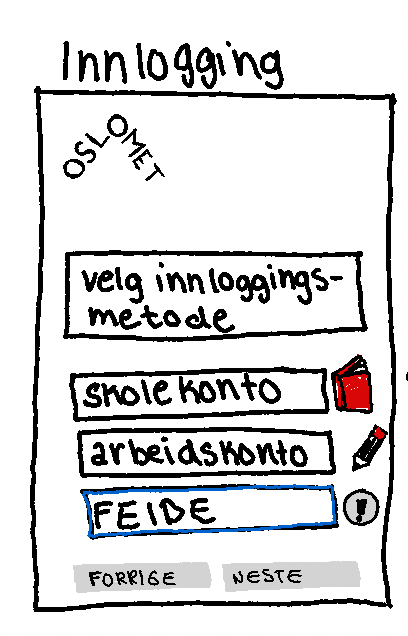 Innlogging
OSLOMET
velg innloggings-
metode
skolekonto
arbeidskonto
FEIDE
!
FORRIGE NESTE